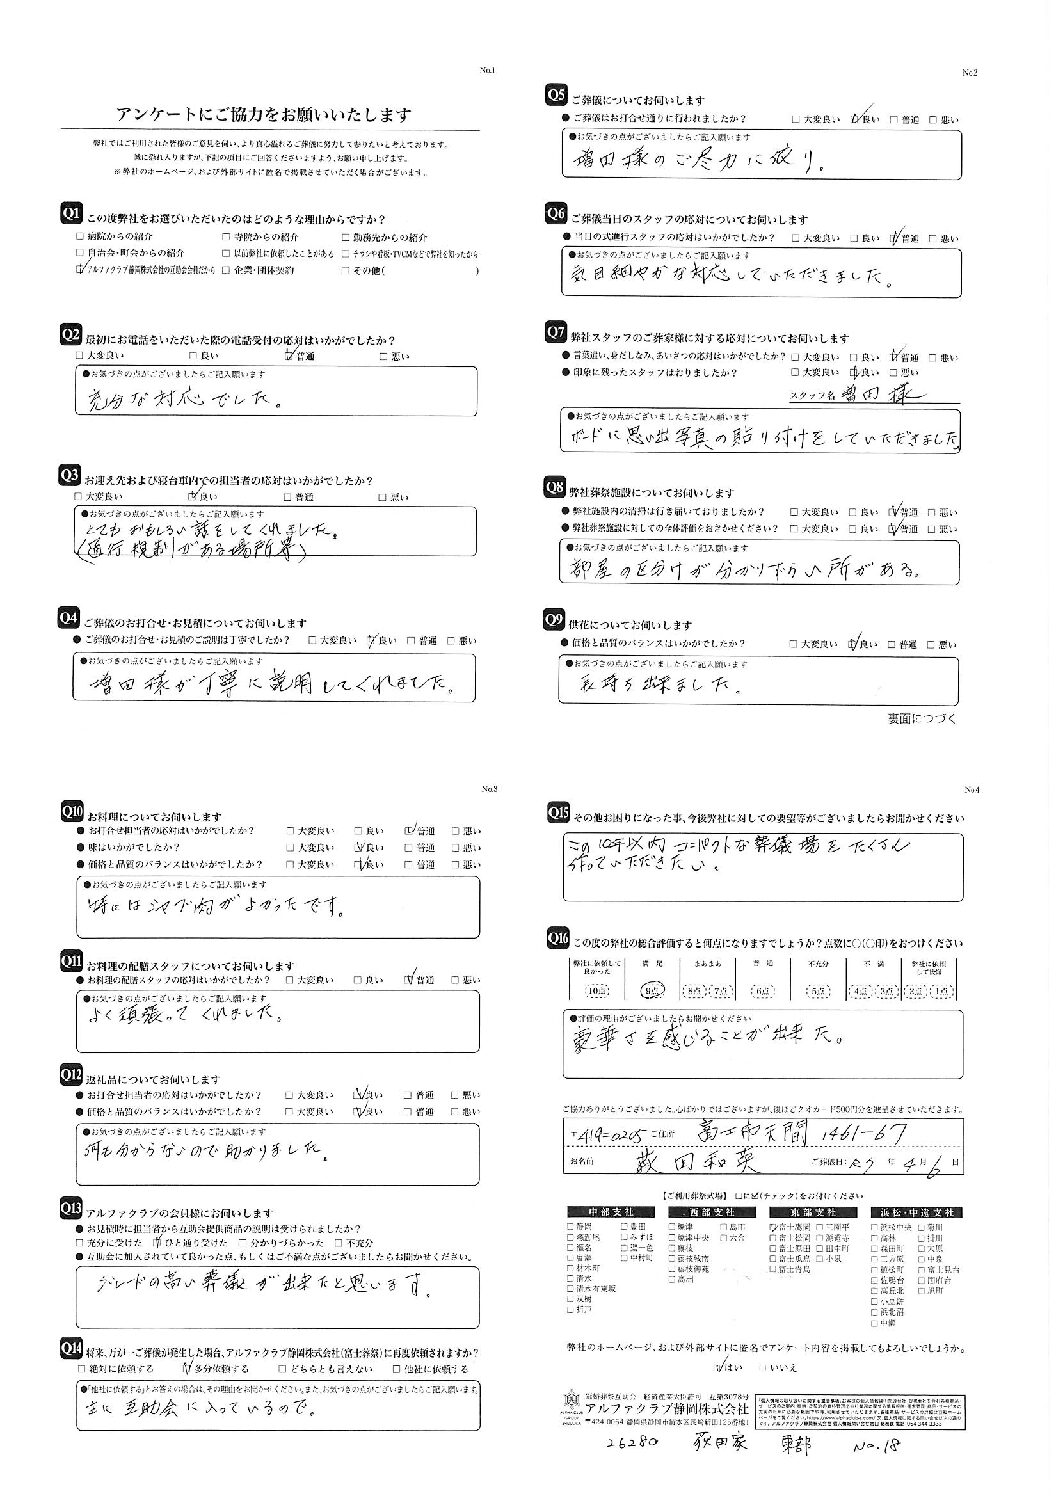 No.1
アンケートにご協力をお願いいたします
弊社ではご利用された皆様のご意見を伺い、より真心溢れるご葬儀に努力して参りたいと考えております。
誠に恐れ入りますが、下記の項目にご回答くださいますよう、お願い申し上げます。
※弊社のホームページ、および外部サイトに匿名で掲載させていただく場合がございます。
Q1 この度弊社をお選びいただいたのはどのような理由からですか？
□ 病院からの紹介 □ 寺院からの紹介 □ 勤務先からの紹介
□ 自治会・町会からの紹介 □ 以前弊社に依頼したことがある □ チラシや看板・TVCMなどで弊社を知ったから
☑ アルファクラブ静岡株式会社の互助会会員だから □ 企業・団体契約 □ その他( )
Q2 最初にお電話をいただいた際の電話受付の応対はいかがでしたか？
□ 大変良い □ 良い ☑ 普通 □ 悪い
●お気づきの点がございましたらご記入願います
充分な対応でした。
Q3 お迎え先および寝台車内での担当者の応対はいかがでしたか？
□ 大変良い ☑ 良い □ 普通 □ 悪い
●お気づきの点がございましたらご記入願います
とてもおもしろい話をしてくれました。
(通行規制がある場所等)
Q4 ご葬儀のお打合せ・お見積についてお伺いします
● ご葬儀のお打合せ・お見積のご説明は丁寧でしたか？ □ 大変良い ☑ 良い □ 普通 □ 悪い
●お気づきの点がございましたらご記入願います
増田様が丁寧に説明してくれました。
No.2
Q5 ご葬儀についてお伺いします
● ご葬儀はお打合せ通りに行われましたか？ □ 大変良い ☑ 良い □ 普通 □ 悪い
●お気づきの点がございましたらご記入願います
増田様のご尽力に依り。
Q6 ご葬儀当日のスタッフの応対についてお伺いします
● 当日の式進行スタッフの応対はいかがでしたか？ □ 大変良い □ 良い ☑ 普通 □ 悪い
●お気づきの点がございましたらご記入願います
細やかな対応していただきました。
Q7 弊社スタッフのご葬家様に対する応対についてお伺いします
● 言葉遣い、身だしなみ、あいさつの応対はいかがでしたか？ □ 大変良い □ 良い ☑ 普通 □ 悪い
● 印象に残ったスタッフはおりましたか？ □ 大変良い ☑ 良い □ 悪い
スタッフ名 増田様
●お気づきの点がございましたらご記入願います
ボードに思い出写真の貼り付けをしていただきました。
Q8 弊社葬祭施設についてお伺いします
● 弊社施設内の清掃は行き届いておりましたか？ □ 大変良い □ 良い ☑ 普通 □ 悪い
● 弊社葬祭施設に対しての全体評価をおきかせください？ □ 大変良い □ 良い ☑ 普通 □ 悪い
●お気づきの点がございましたらご記入願います
部屋の区分けが分かりずらい所がある。
Q9 供花についてお伺いします
● 価格と品質のバランスはいかがでしたか？ □ 大変良い ☑ 良い □ 普通 □ 悪い
●お気づきの点がございましたらご記入願います
長持ち出来ました。
裏面につづく
No.3
Q10 お料理についてお伺いします
● お打合せ担当者の応対はいかがでしたか？ □ 大変良い □ 良い ☑ 普通 □ 悪い
● 味はいかがでしたか？ □ 大変良い ☑ 良い □ 普通 □ 悪い
● 価格と品質のバランスはいかがでしたか？ □ 大変良い ☑ 良い □ 普通 □ 悪い
●お気づきの点がございましたらご記入願います
特にはシャブ肉がよかったです。
Q11 お料理の配膳スタッフについてお伺いします
● お料理の配膳スタッフの応対はいかがでしたか？ □ 大変良い □ 良い ☑ 普通 □ 悪い
●お気づきの点がございましたらご記入願います
よく頑張ってくれました。
Q12 返礼品についてお伺いします
● お打合せ担当者の応対はいかがでしたか？ □ 大変良い ☑ 良い □ 普通 □ 悪い
● 価格と品質のバランスはいかがでしたか？ □ 大変良い ☑ 良い □ 普通 □ 悪い
●お気づきの点がございましたらご記入願います
何も分からないので助かりました。
Q13 アルファクラブの会員様にお伺いします
● お見積時に担当者から互助会提供商品の説明は受けられましたか？
□ 充分に受けた ☑ ひと通り受けた □ 分かりづらかった □ 不充分
● 互助会に加入されていて良かった点、もしくはご不満な点がございましたらお聞かせください。
グレードの高い葬儀が出来たと思います。
Q14 将来、万が一ご葬儀が発生した場合、アルファクラブ静岡株式会社(富士葬祭)に再度依頼されますか？
□ 絶対に依頼する ☑ 多分依頼する □ どちらとも言えない □ 他社に依頼する
●「他社に依頼する」とお答えの場合は、その理由をお聞かせください。また、お気づきの点がございましたらご記入願います。
主に互助会に入っているので。
No.4
Q15 その他お困りになった事、今後弊社に対しての要望等がございましたらお聞かせください
この10年以内コンパクトな葬儀場をたくさん
作っていただきたい。
Q16 この度の弊社の総合評価すると何点になりますでしょうか？点数に○(○印)をおつけください
弊社に依頼して良かった 満足 まあまあ 普通 不充分 不満 弊社に依頼して後悔
10点 9点 8点 7点 6点 5点 4点 3点 2点 1点
●評価の理由がございましたらお聞かせください
豪華さを感じることが出来た。
ご協力ありがとうございました。心ばかりではございますが、後ほどクオカード500円分を進呈させていただきます。
〒419-0205 ご住所 富士市天間1461-67
お名前 荻田和英 ご葬儀日: R7年4月6日
【ご利用葬祭式場】 □に☑(チェック)をお付けください
中部支社 西部支社 東部支社 浜松・中遠支社
弊社のホームページ、および外部サイトに匿名でアンケート内容を掲載してもよろしいでしょうか。
☑はい □いいえ
アルファクラブ静岡株式会社
26280 荻田家 東部 No.18